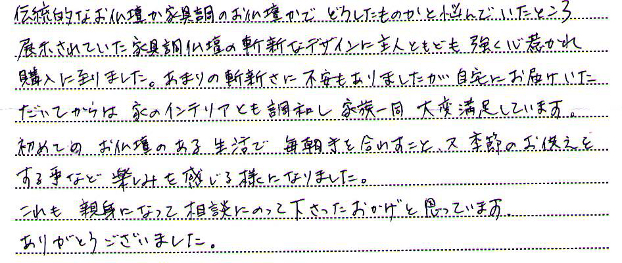 伝統的なお仏壇か家具調のお仏壇かで どうしたものかと悩んでいたところ
展示されていた家具調仏壇の斬新なデザインに主人ともども 強く心惹かれ
購入に至りました。あまりの斬新さに 不安もありましたが自宅にお届けいた
だいてからは 家のインテリアとも調和し 家族一同 大変満足しています。
初めての お仏壇のある生活で 毎朝手を合わすこと、又 季節のお供えを
する事など 楽しみを感じる様になりました。
これも 親身になって相談にのって下さったおかげと思っています。
ありがとうございました。